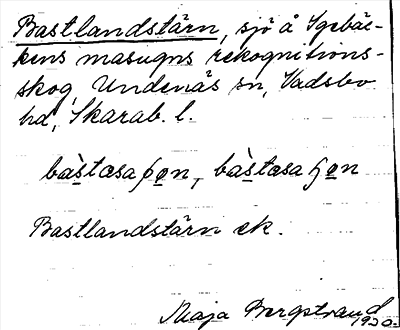 Bastlandstärn, sjö å Igebäc-
kens masugns rekognitions-
skog, Undenäs sn, Vadsbo
hd, Skarab. l.
Bastlandstärn ek.
Maja Bergstrand
1930.